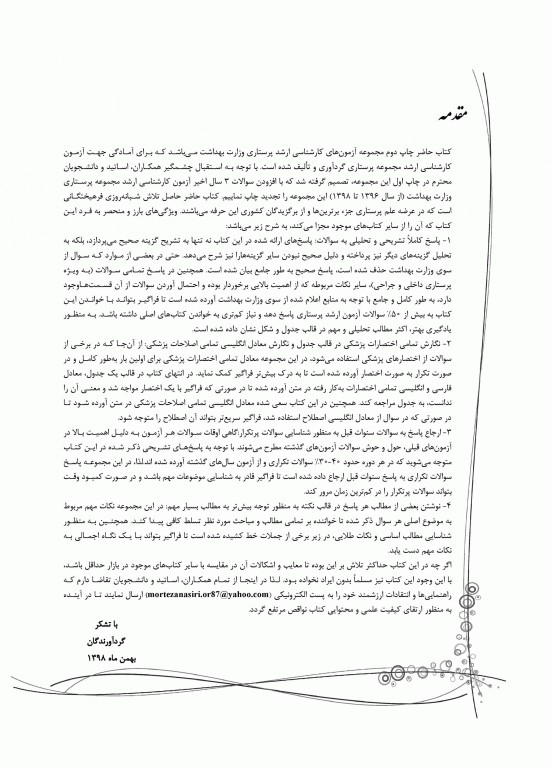 مقدمه
کتاب حاضر چاپ دوم مجموعه آزمون‌های کارشناسی ارشد پرستاری وزارت بهداشت می‌باشد که برای آمادگی جهت آزمون
کارشناسی ارشد مجموعه پرستاری گردآوری و تألیف شده است. با توجه به استقبال چشمگیر همکاران، اساتید و دانشجویان
محترم در چاپ اول این مجموعه، تصمیم گرفته شد که با افزودن سوالات ۳ سال اخیر آزمون کارشناسی ارشد مجموعه پرستاری
وزارت بهداشت (از سال ۱۳۹۶ تا ۱۳۹۸) این مجموعه را تجدید چاپ نماییم. کتاب حاضر حاصل تلاش شبانه‌روزی فرهیختگانی
است که در عرصه علم پرستاری جزء برترین‌ها و از برگزیدگان کشوری این حرفه می‌باشند. ویژگی‌های بارز و منحصر به فرد این
کتاب که آن را از سایر کتاب‌های موجود مجزا می‌کند، به شرح زیر می‌باشد:
۱- پاسخ کاملاً تشریحی و تحلیلی به سوالات: پاسخ‌های ارائه شده در این کتاب نه تنها به تشریح گزینه صحیح می‌پردازد، بلکه به
تحلیل گزینه‌های دیگر نیز پرداخته و دلیل صحیح نبودن سایر گزینه‌هارا نیز شرح می‌دهد. حتی در بعضی از موارد که سوال از
سوی وزارت بهداشت حذف شده است، پاسخ صحیح به طور جامع بیان شده است. همچنین در پاسخ تمامی سوالات (به ویژه
پرستاری داخلی و جراحی)، سایر نکات مربوطه که از اهمیت بالایی برخوردار بوده و احتمال آوردن سوالات از آن قسمت‌هاوجود
دارد، به طور کامل و جامع با توجه به منابع اعلام شده از سوی وزارت بهداشت آورده شده است تا فراگیر بتواند با خواندن این
کتاب به بیش از ۵۰٪ سوالات آزمون ارشد پرستاری پاسخ دهد و نیاز کم‌تری به خواندن کتاب‌های اصلی داشته باشد. به منظور
یادگیری بهتر، اکثر مطالب تحلیلی و مهم در قالب جدول و شکل نشان داده شده است.
۲- نگارش تمامی اختصارات پزشکی در قالب جدول و نگارش معادل انگلیسی تمامی اصلاحات پزشکی: از آن‌جا که در برخی از
سوالات از اختصارهای پزشکی استفاده می‌شود، در این مجموعه معادل تمامی اختصارات پزشکی برای اولین بار به‌طور کامل و در
صورت تکرار به صورت اختصار آورده شده است تا به درک بیش‌تر فراگیر کمک نماید. در انتهای کتاب در قالب یک جدول، معادل
فارسی و انگلیسی تمامی اختصارات به‌کار رفته در متن آورده شده تا در صورتی که فراگیر با یک اختصار مواجه شد و معنی آن را
ندانست، به جدول مراجعه کند. همچنین در این کتاب سعی شده معادل انگلیسی تمامی اصلاحات پزشکی در متن آورده شود تا
در صورتی که در سوال از معادل انگلیسی اصطلاح استفاده شد، فراگیر سریع‌تر بتواند آن اصطلاح را متوجه شود.
۳- ارجاع پاسخ به سوالات سنوات قبل به منظور شناسایی سوالات پرتکرار:گاهی اوقات سوالات هر آزمون به دلیل اهمیت بالا در
آزمون‌های قبلی، حول و حوش سوالات آزمون‌های گذشته مطرح می‌شوند. با توجه به پاسخ‌های تشریحی ذکر شده در این کتاب
متوجه می‌شوید که در هر دوره حدود ۴۰-۳۰٪ سوالات تکراری و از آزمون سال‌های گذشته آورده شده اند.لذا، در این مجموعه پاسخ
سوالات تکراری به پاسخ سنوات قبل ارجاع داده شده است تا فراگیر قادر به شناسایی موضوعات مهم باشد و در صورت کمبود وقت
بتواند سوالات پرتکرار را در کم‌ترین زمان مرور کند.
۴- نوشتن بعضی از مطالب هر پاسخ در قالب نکته به منظور توجه بیش‌تر به مطالب بسیار مهم: در این مجموعه نکات مهم مربوط
به موضوع اصلی هر سوال ذکر شده تا خواننده بر تمامی مطالب و مباحث مورد نظر تسلط کافی پیدا کند. همچنین به منظور
شناسایی مطالب اساسی و نکات طلایی، در زیر برخی از جملات خط کشیده شده است تا فراگیر بتواند با یک نگاه اجمالی به
نکات مهم دست یابد.
اگر چه در این کتاب حداکثر تلاش بر این بوده تا معایب و اشکالات آن در مقایسه با سایر کتاب‌های موجود در بازار حداقل باشد،
با این وجود این کتاب نیز مسلماً بدون ایراد نخواهد بود. لذا در اینجا از تمام همکاران، اساتید و دانشجویان تقاضا دارم که
راهنمایی‌ها و انتقادات ارزشمند خود را به پست الکترونیکی (mortezanasiri.or87@yahoo.com) ارسال نمایند تا در آینده
به منظور ارتقای کیفیت علمی و محتوایی کتاب نواقص مرتفع گردد.
با تشکر
گردآورندگان
بهمن ماه ۱۳۹۸